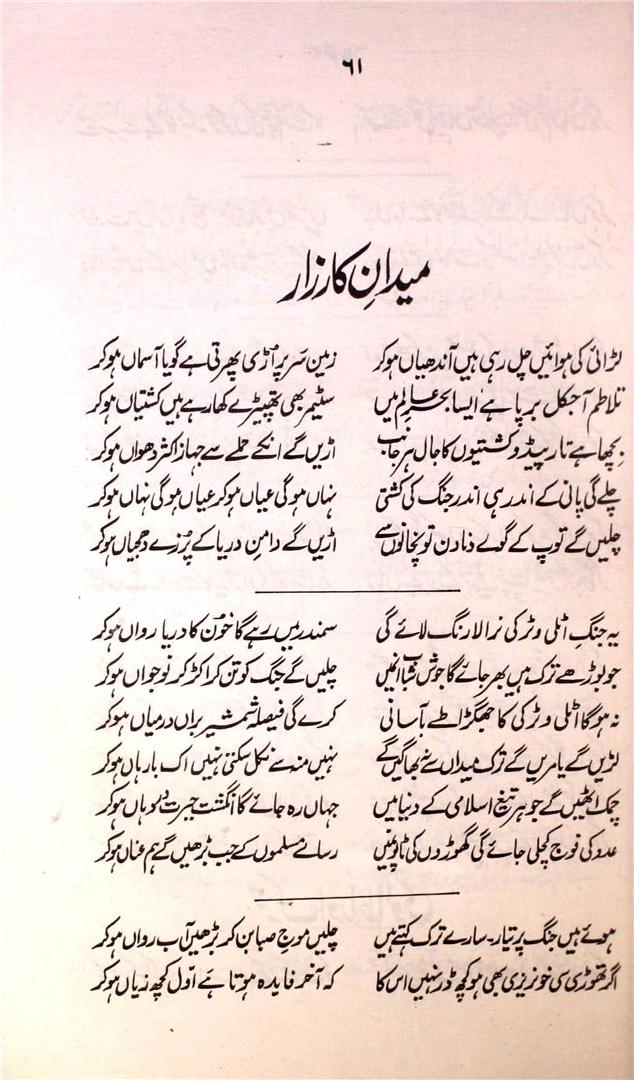 ٦١
میدانِ کارزار
لڑائی کی ہوائیں چل رہی ہیں آندھیاں ہوکر زمین سر پر اڑی پھرتی ہے گویا آسماں ہوکر
تلاطم آجکل برپا ہے ایسا بحرِ عالم میں سٹیمر بھی تھپیڑے کھا رہے ہیں کشتیاں ہوکر
بچھا ہے تارپیڈو کشتیوں کا جال ہر جانب اڑیں گے انکے حملے سے جہاز اکثر دھواں ہوکر
چلے گی پانی کے اندر ہی اندر جنگ کی کشتی نہاں ہوگی عیاں ہوکر عیاں ہوگی نہاں ہوکر
چلیں گے توپ کے گولے دنادن توپخانوں سے اڑیں گے دامنِ دریا کے پرزے دھجیاں ہوکر
یہ جنگِ اٹلی وٹرکی نرالا رنگ لائے گی سمندر میں رہے گا خون کا دریا رواں ہوکر
جو بوڑھے ترک ہیں بھر جائے گا جوشِ شباب انمیں چلیں گے جنگ کو تن کر اکڑ کر نوجواں ہوکر
نہ ہوگا اٹلی وٹرکی کا جھگڑا طے بآسانی کرے گی فیصلہ شمشیرِ براں درمیاں ہوکر
لڑیں گے یا مریں گے ترک میداں سے نہ بھاگیں گے نہیں منہ سے نکل سکتی نہیں اک بار ہاں ہوکر
چمک اٹھیں گے جوہر تیغِ اسلامی کے دنیا میں جہاں رہ جائے گا انگشتِ حیرت در دہاں ہوکر
عدو کی فوج کچلی جائے گی گھوڑوں کی ٹاپوں میں رسالے مسلموں کے جب بڑھیں گے ہم عناں ہوکر
ہوئے ہیں جنگ پر تیار۔ سارے ترک کہتے ہیں چلیں موجِ صبا بن کر بڑھیں آبِ رواں ہوکر
اگر تھوڑی سی خونریزی بھی ہو کچھ ڈر نہیں اس کا کہ آخر فایدہ ہوتا ہے اوّل کچھ زیاں ہوکر